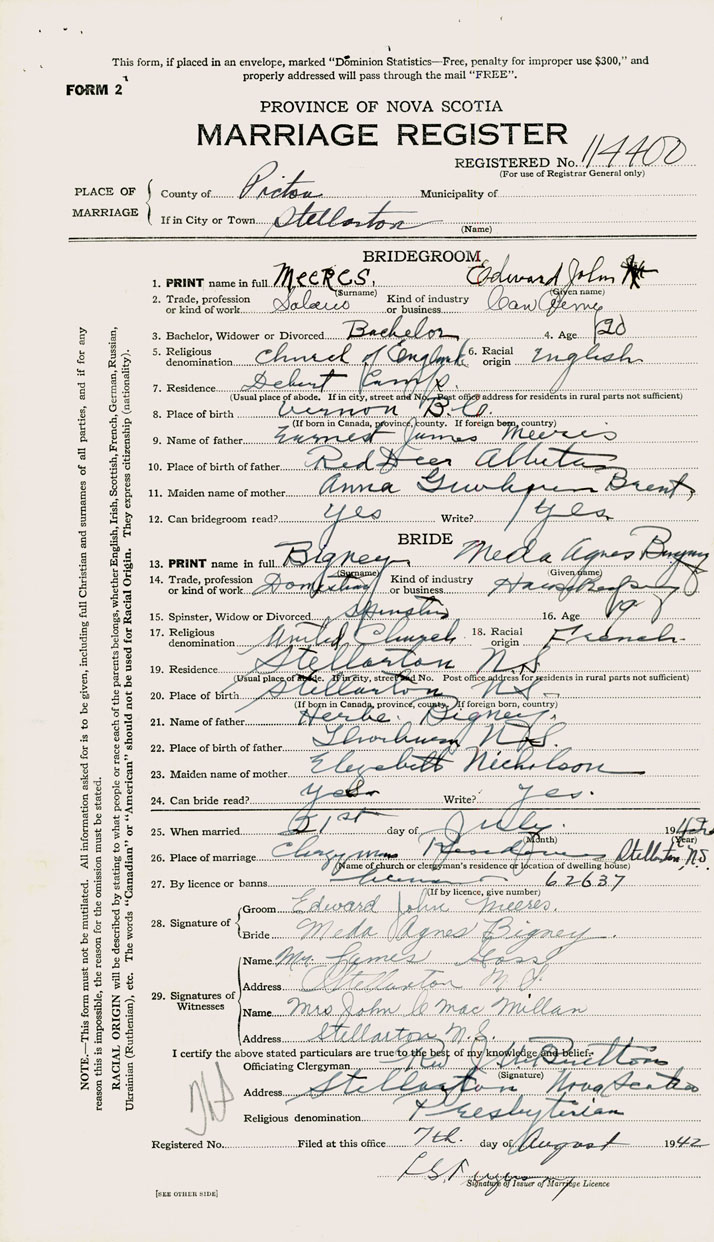 This form, if placed in an envelope, marked “Dominion Statistics—Free, penalty for improper use $300,” and
properly addressed will pass through the mail “FREE”.
FORM 2
PROVINCE OF NOVA SCOTIA
MARRIAGE REGISTER
REGISTERED No. 114400
(For use of Registrar General only)
PLACE OF MARRIAGE
County of Pictou Municipality of
If in City or Town Stellarton
(Name)
BRIDEGROOM
1. PRINT name in full MEERES, Edward John
(Surname) (Given name)
2. Trade, profession or kind of work Kind of industry or business Can
3. Bachelor, Widower or Divorced Bachelor 4. Age 20
5. Religious denomination Church of England 6. Racial origin English
7. Residence Debert Camp.
(Usual place of abode. If in city, street and No. Post office address for residents in rural parts not sufficient)
8. Place of birth Vernon B.C.
(If born in Canada, province, county. If foreign born, country)
9. Name of father Earnest James Meeres
10. Place of birth of father Red Deer Alberta
11. Maiden name of mother Anna Brent
12. Can bridegroom read? yes Write? yes
BRIDE
13. PRINT name in full Bigney, Meda Agnes Bigney
(Surname) (Given name)
14. Trade, profession or kind of work Domestic Kind of industry or business Housekeeping
15. Spinster, Widow or Divorced Spinster 16. Age 19
17. Religious denomination United Church 18. Racial origin French
19. Residence Stellarton N.S.
(Usual place of abode. If in city, street and No. Post office address for residents in rural parts not sufficient)
20. Place of birth Stellarton N.S.
(If born in Canada, province, county. If foreign born, country)
21. Name of father Herbe. Bigney.
22. Place of birth of father Thorburn N.S.
23. Maiden name of mother Elizabeth Nicholson
24. Can bride read? yes Write? yes.
25. When married 31st day of July. 1942
(Month) (Year)
26. Place of marriage Clergyman Residence Stellarton, N.S.
(Name of church or clergyman's residence or location of dwelling house)
27. By licence or banns license 62637
(If by licence, give number)
28. Signature of
Groom Edward John Meeres.
Bride Meda Agnes Bigney.
29. Signatures of Witnesses
Name Mr. James Goss
Address Stellarton N.S.
Name Mrs John C MacMillan
Address Stellarton N.S.
I certify the above stated particulars are true to the best of my knowledge and belief.
Officiating Clergyman Rev J. W. Britton
(Signature)
Address Stellarton Nova Scotia
Religious denomination Presbyterian
Registered No. Filed at this office 7th. day of August 1942
Signature of Issuer of Marriage Licence
[SEE OTHER SIDE]
NOTE.—This form must not be mutilated. All information asked for is to be given, including full Christian and surnames of all parties, and if for any
reason this is impossible, the reason for the omission must be stated.
RACIAL ORIGIN will be described by stating to what people or race each of the parents belongs, whether English, Irish, Scottish, French, German, Russian,
Ukrainian (Ruthenian), etc. The words “Canadian” or “American” should not be used for Racial Origin. They express citizenship (nationality).